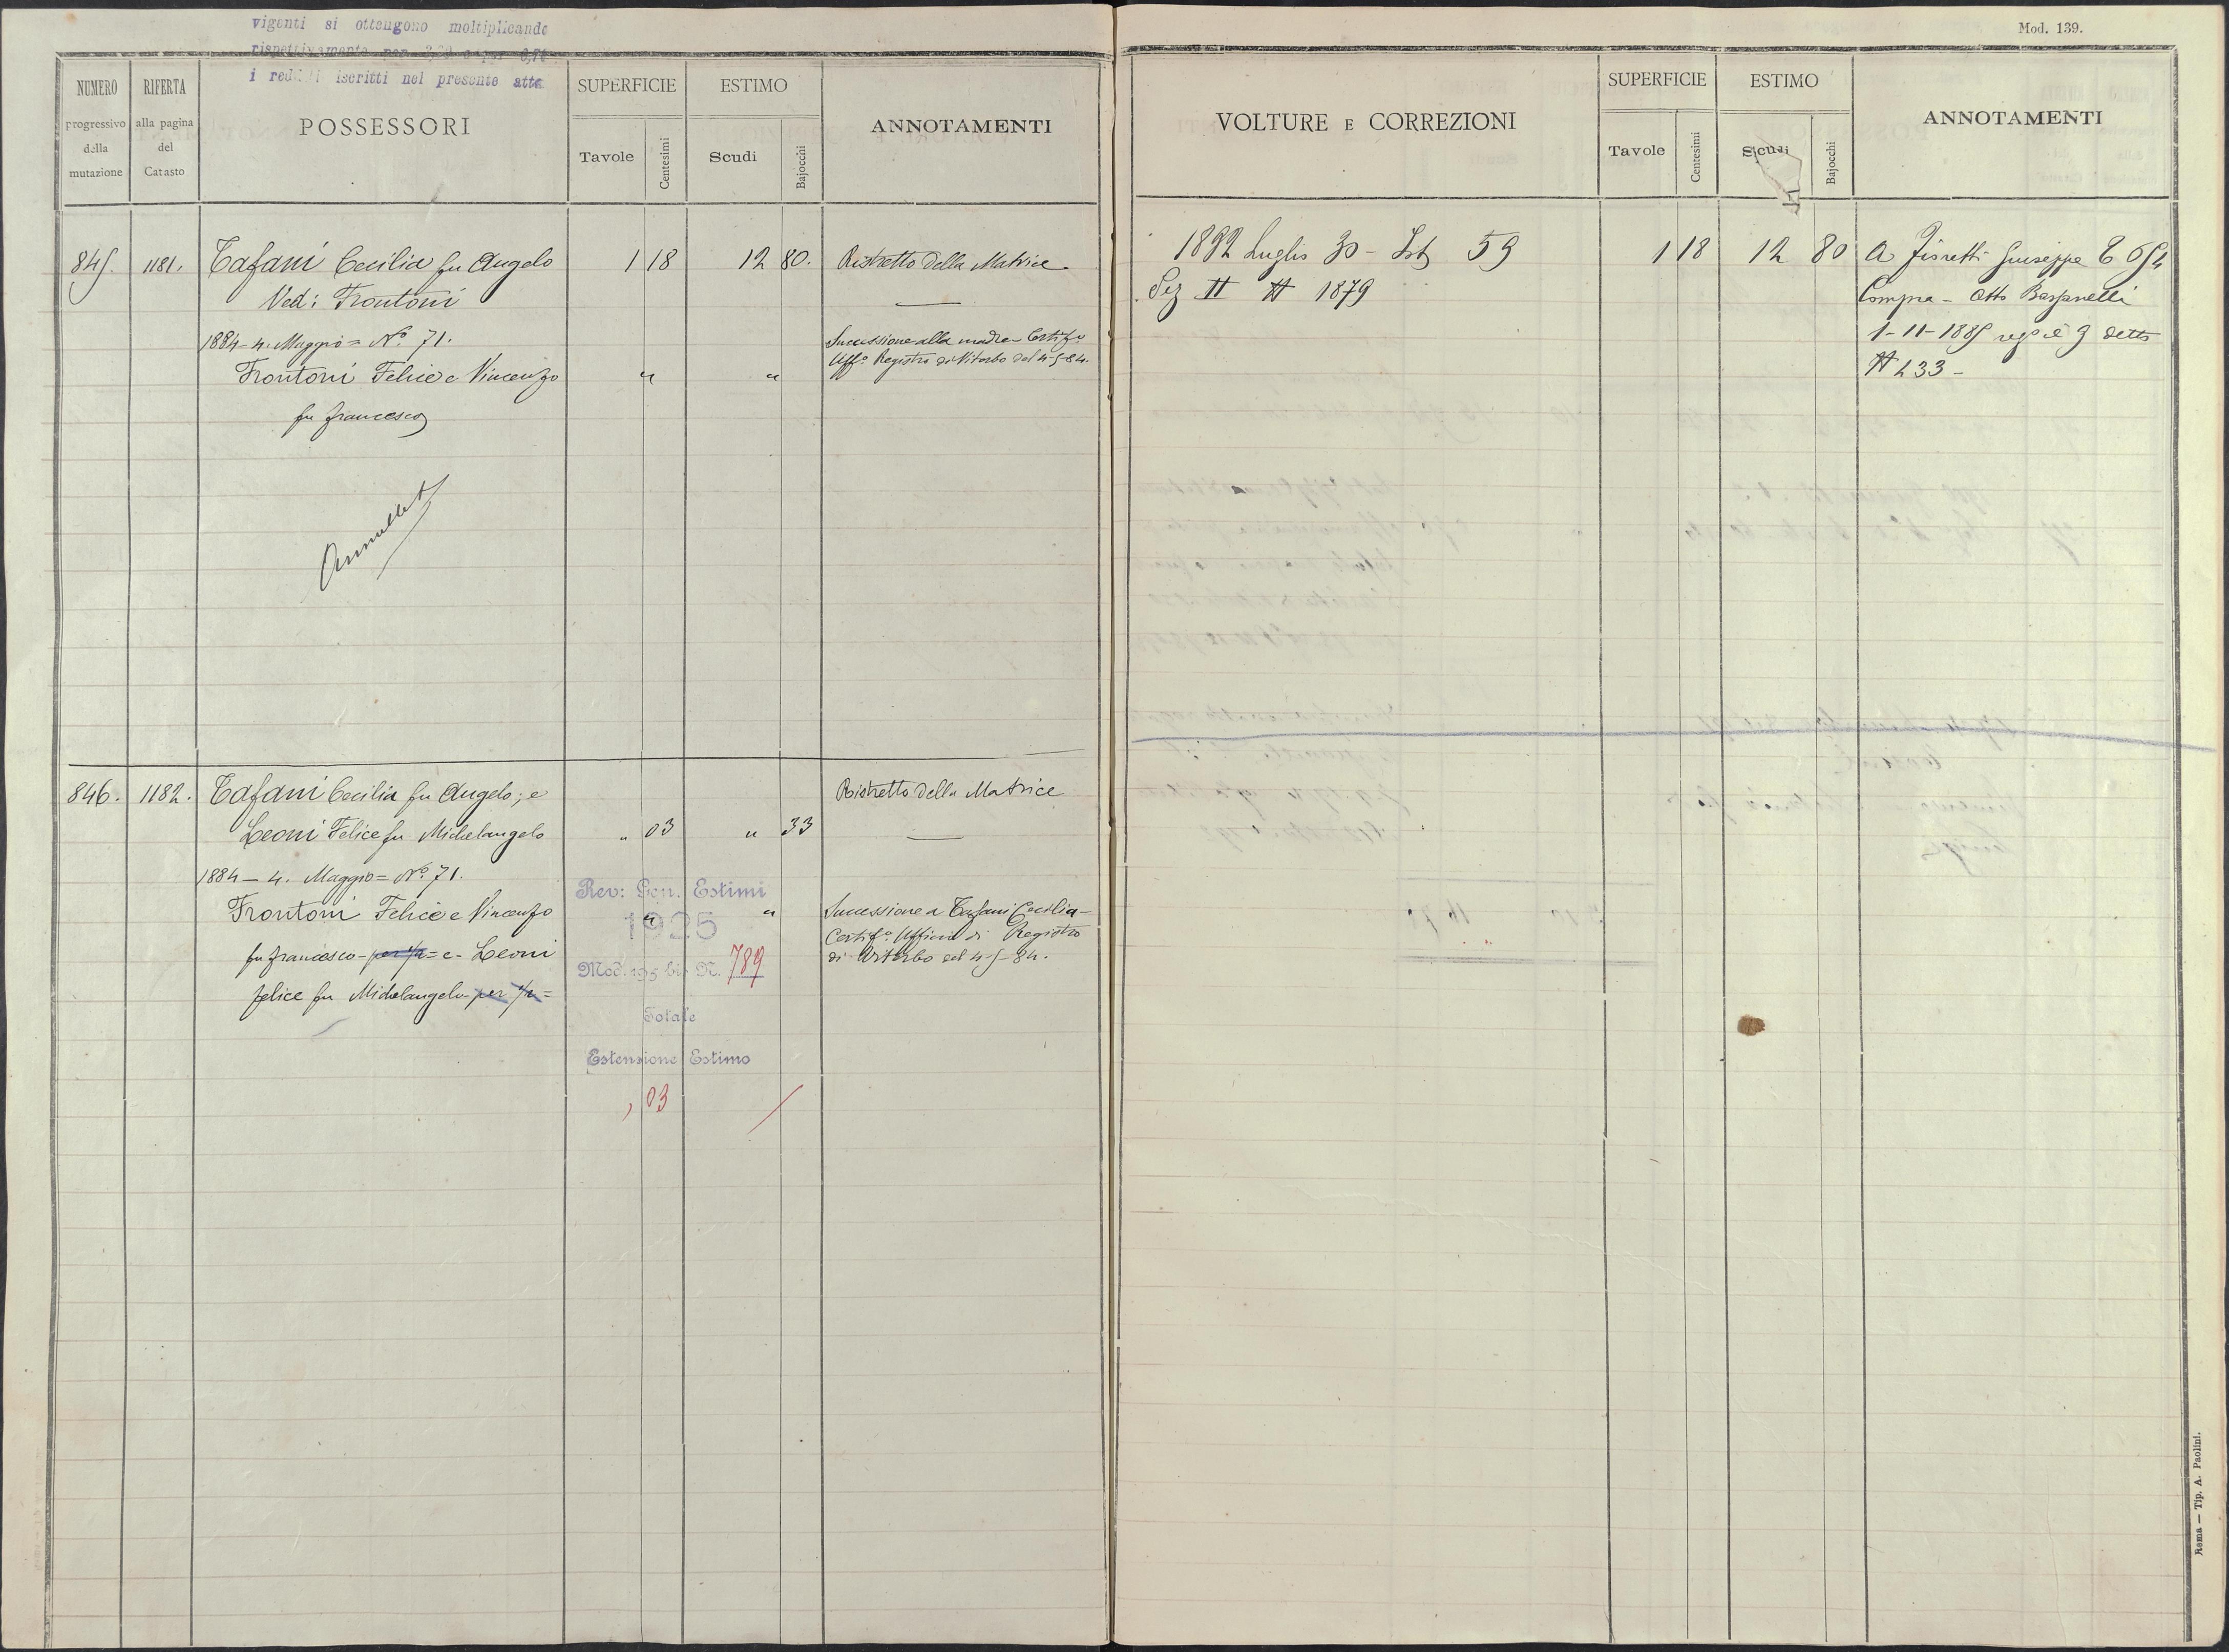 vigenti si ottengono moltiplicando
rispettivamente per
i redditi iscritti nel presente atto
Mod. 139.
NUMERO progressivo della mutazione
RIFERTA alla pagina del Catasto
POSSESSORI
SUPERFICIE
Tavole Centesimi
ESTIMO
Scudi Bajocchi
ANNOTAMENTI
VOLTURE E CORREZIONI
SUPERFICIE
Tavole Centesimi
ESTIMO
Scudi Bajocchi
ANNOTAMENTI
845. 1181. Tafani Cecilia fu Angelo 1 18 12 80. Ristretto della Matrice
Ved: Frontoni
1884-4. Maggio = N° 71. Successione alla madre - Certif°
Frontoni Felice e Vincenzo " " Uff° Registro di Viterbo del 4-5-84.
fu Francesco
Annullata
1892 Luglio 30 - 59 1 18 12 80 A Fioretti Giuseppe
Sez II N 1879 Compra - Atto
1-11-1885 detto
N 233 -
846. 1182. Tafani Cecilia fu Angelo; e Ristretto della Matrice
Leoni Felice fu Michelangelo " 03 " 33
1884 - 4. Maggio = N° 71.
Rev: Gen. Estimi
Frontoni Felice e Vincenzo " " Successione a Tafani Cecilia -
1925
Certif°. Ufficio di Registro
fu Francesco - per 1/2 = e - Leoni di Viterbo del 4-5-84.
Mod. 195 bis N. 789
Felice fu Michelangelo - per 1/2 =
Totale
Estensione Estimo
, 03 /
Roma — Tip. A. Paolini.